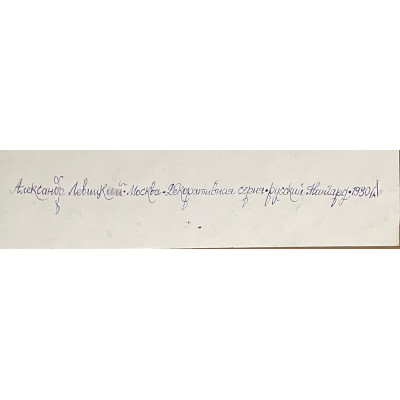 Александр Левицкий • Москва • Декоративная серия • русский Авангард • 1990